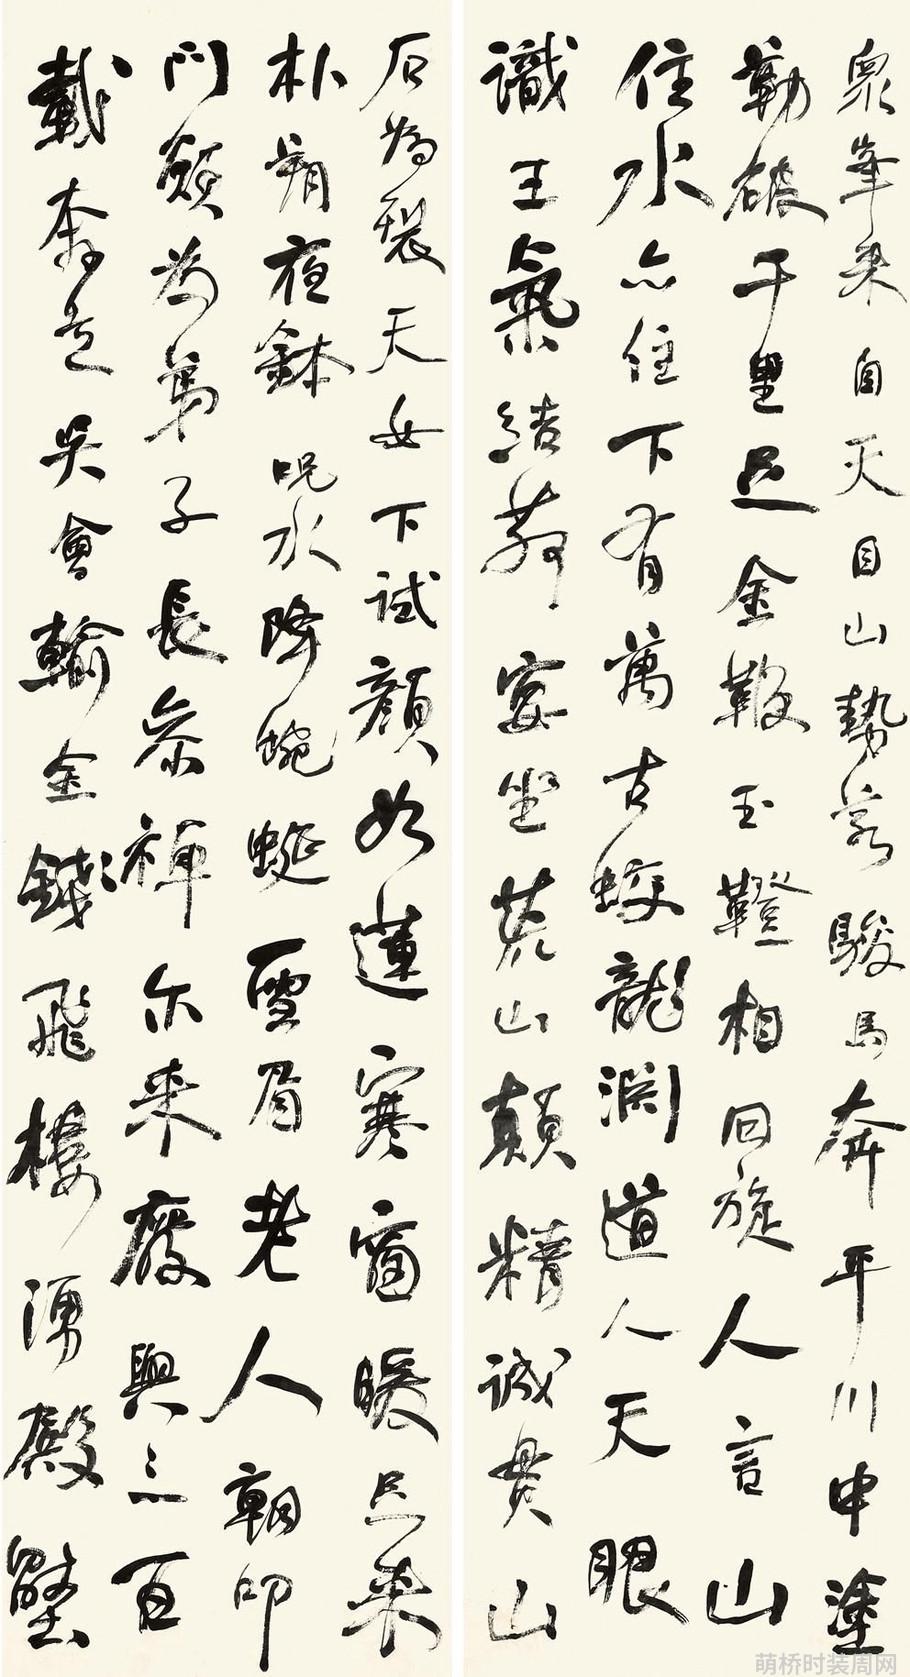 眾峯来自天目山勢若駿馬奔平川申塗
勒破千里足金鞭玉鐙相回旋人言山
住水亦住下有萬古蛟龍淵道人天眼
識王氣結茅宴坐荒山顛精誠貫山
石為裂天女下試顏如蓮寒窗暖足来
朴朔夜鉢呪水降蜿蜒雪眉老人朝叩
門願為弟子長參禪尔来廢興三百
載奔走吳會輸金錢飛樓湧殿壓
萌桥时装周网